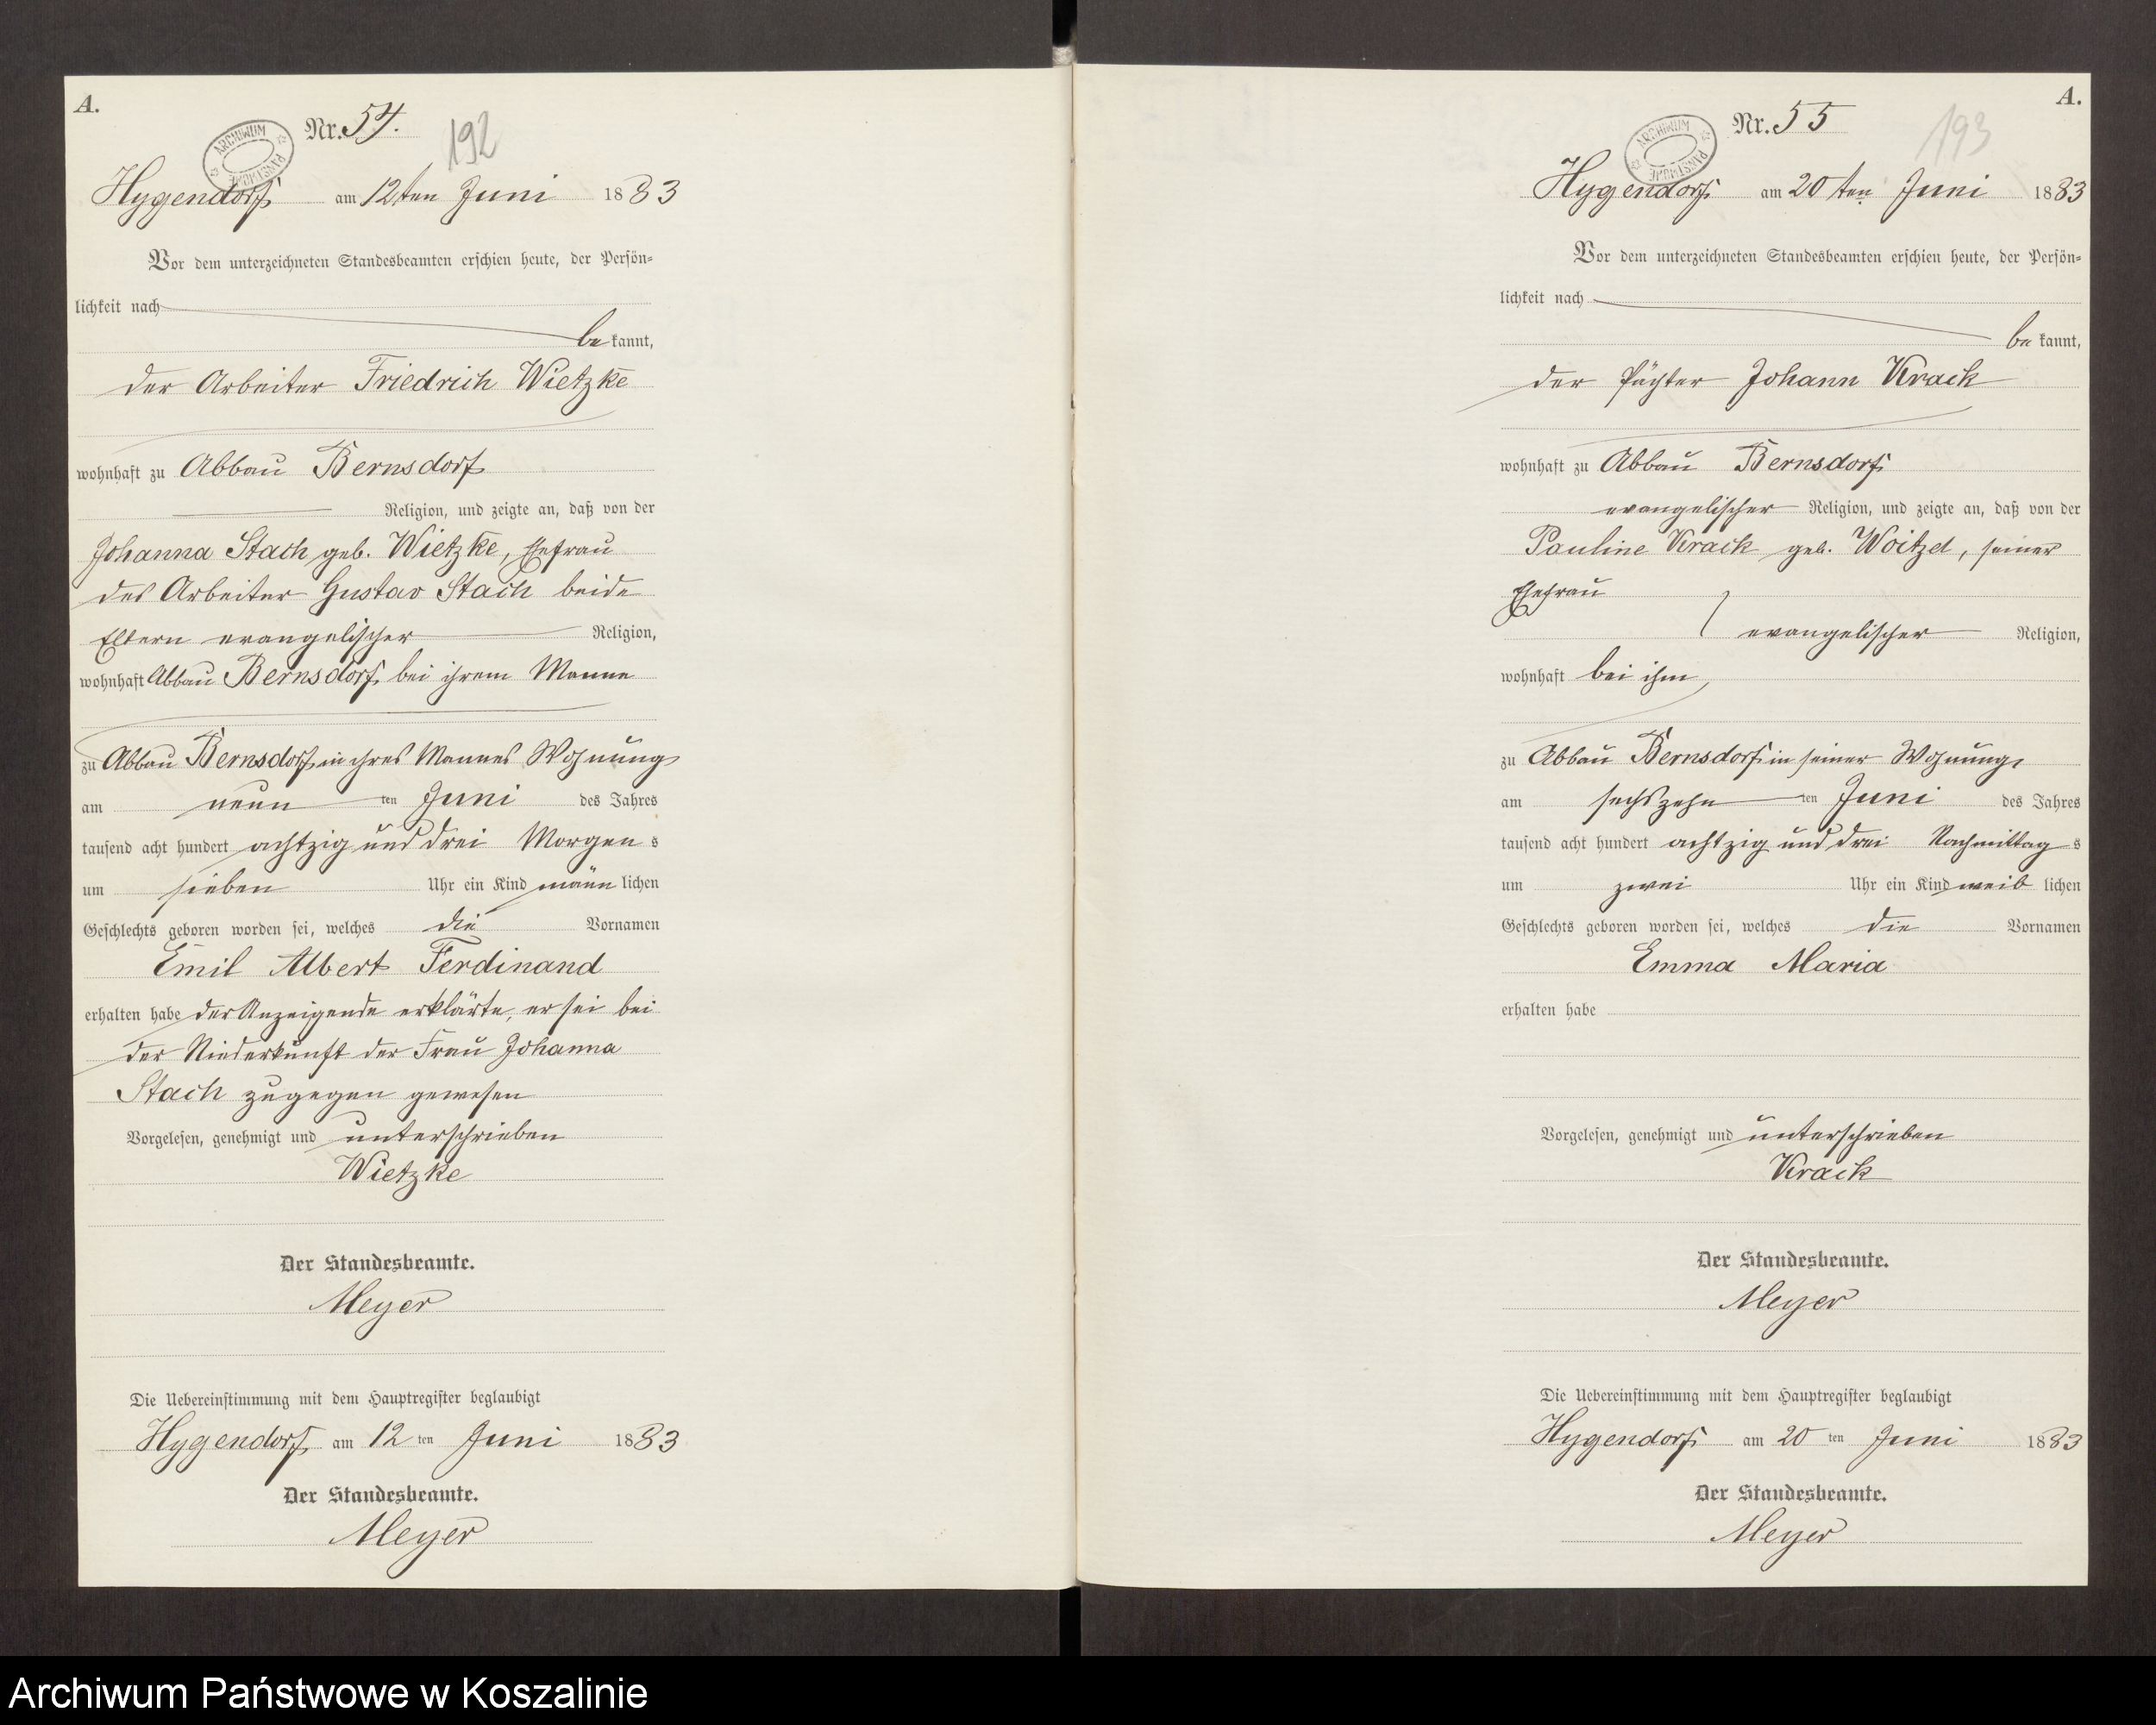 A.
Nr. 54.
192
ARCHIWUM PAŃSTWOWE
Hygendorf am 12ten Juni 1883
Vor dem unterzeichneten Standesbeamten erschien heute, der Persön-
lichkeit nach
bekannt,
der Arbeiter Friedrich Wietzke
wohnhaft zu Abbau Bernsdorf
Religion, und zeigte an, daß von der
Johanna Stach geb. Wietzke, Ehefrau
des Arbeiter Gustav Stach beide
Eltern evangelischer Religion,
wohnhaft Abbau Bernsdorf bei ihrem Manne
zu Abbau Bernsdorf in ihres Mannes Wohnung
am neun ten Juni des Jahres
tausend acht hundert achtzig und drei Morgens
um sieben Uhr ein Kind männlichen
Geschlechts geboren worden sei, welches die Vornamen
Emil Albert Ferdinand
erhalten habe der Anzeigende erklärte, er sei bei
der Niederkunft der Frau Johanna
Stach zugegen gewesen
Vorgelesen, genehmigt und unterschrieben
Wietzke
Der Standesbeamte.
Meyer
Die Uebereinstimmung mit dem Hauptregister beglaubigt
Hygendorf am 12 ten Juni 1883
Der Standesbeamte.
Meyer
A.
Nr. 55
193
ARCHIWUM PAŃSTWOWE
Hygendorf am 20ten Juni 1883
Vor dem unterzeichneten Standesbeamten erschien heute, der Persön-
lichkeit nach
bekannt,
der Pächter Johann Krack
wohnhaft zu Abbau Bernsdorf
evangelischer Religion, und zeigte an, daß von der
Pauline Krack geb. Woitzel, seiner
Ehefrau
evangelischer Religion,
wohnhaft bei ihm,
zu Abbau Bernsdorf in seiner Wohnung
am sechszehn ten Juni des Jahres
tausend acht hundert achtzig und drei Nachmittags
um zwei Uhr ein Kind weiblichen
Geschlechts geboren worden sei, welches die Vornamen
Emma Maria
erhalten habe
Vorgelesen, genehmigt und unterschrieben
Krack
Der Standesbeamte.
Meyer
Die Uebereinstimmung mit dem Hauptregister beglaubigt
Hygendorf am 20 ten Juni 1883
Der Standesbeamte.
Meyer
Archiwum Państwowe w Koszalinie